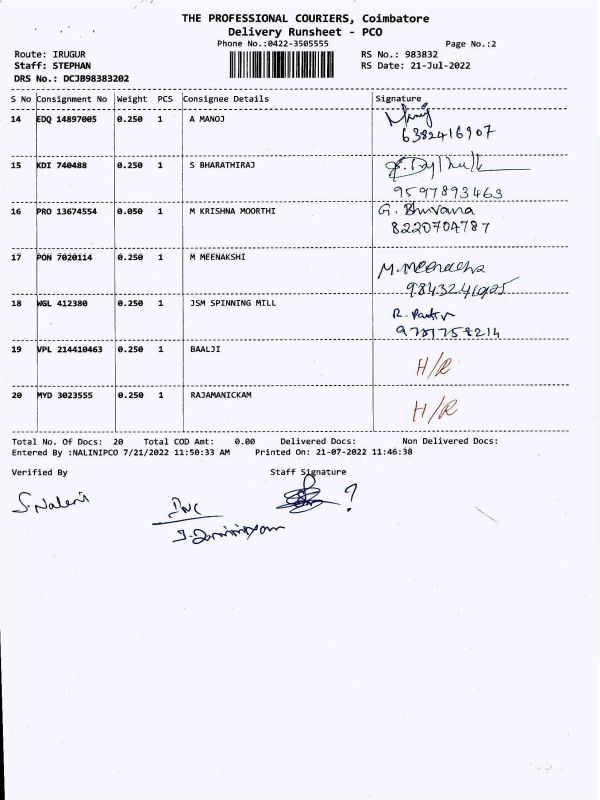 THE PROFESSIONAL COURIERS, Coimbatore
Delivery Runsheet - PCO
Phone No.:0422-3505555 Page No.:2
Route: IRUGUR RS No.: 983832
Staff: STEPHAN RS Date: 21-Jul-2022
DRS No.: DCJB98383202
S No Consignment No Weight PCS Consignee Details Signature
14 EDQ 14897005 0.250 1 A MANOJ
6382416907
15 KDI 740488 0.250 1 S BHARATHIRAJ
9597893463
16 PRO 13674554 0.050 1 M KRISHNA MOORTHI G. Bhuvana
8220704787
17 PON 7020114 0.250 1 M MEENAKSHI
M. Meenacha
18 WGL 412380 0.250 1 JSM SPINNING MILL R.
9787758214
19 VPL 214410463 0.250 1 BAALJI H/R
20 MYD 3023555 0.250 1 RAJAMANICKAM H/R
Total No. Of Docs: 20 Total COD Amt: 0.00 Delivered Docs: Non Delivered Docs:
Entered By :NALINIPCO 7/21/2022 11:50:33 AM Printed On: 21-07-2022 11:46:38
Verified By Staff Signature
S. Nalini ?